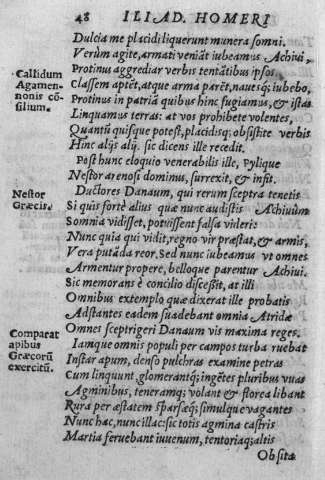 48 ILIAD. HOMERI
Dulcia me placidi liquerunt munera somni.
Verùm agite, armati veniāt iubeamus Achiui,
Protinus aggrediar verbis tentātibus ipsos.
Callidum
Agamem-
nonis cō-
silium.
Classem aptēt, atque arma parēt, nauesq; iubebo,
Protinus in patriā quibus hinc fugiamus, & istas
Linquamus terras: at vos prohibete volentes,
Quantū quisque potest, placidisq; obsistite verbis
Hinc alijs alij. sic dicens ille recedit.
Post hunc eloquio venerabilis ille, Pylique
Nestor arenosi dominus, surrexit, & infit.
Nestor
Græcis.
Ductores Danaum, qui rerum sceptra tenetis
Si quis fortè alius quæ nunc audistis Achiuūm
Somnia vidisset, potuissent falsa videri:
Nunc quia qui vidit, regno vir præstat, & armis,
Vera putāda reor. Sed nunc iubeamus vt omnes
Armentur propere, belloque parentur Achiui.
Sic memorans è concilio discessit, at illi
Omnibus extemplo quæ dixerat ille probatis
Adstantes eadem suadebant omnia Atridæ
Omnes sceptrigeri Danaum vis maxima reges.
Comparat
apibus
Græcorū
exercitū.
Iamque omnis populi per campos turba ruebat
Instar apum, denso pulchras examine petras
Cum linquunt, glomerantq; ingētes pluribus vuas
Agminibus, teneramq; volant & florea libant
Rura per æstatem sparsæq; simulque vagantes
Nunc hac, nunc illac: sic totis agmina castris
Martia feruebant iuuenum, tentoriaq; altis
Obsita